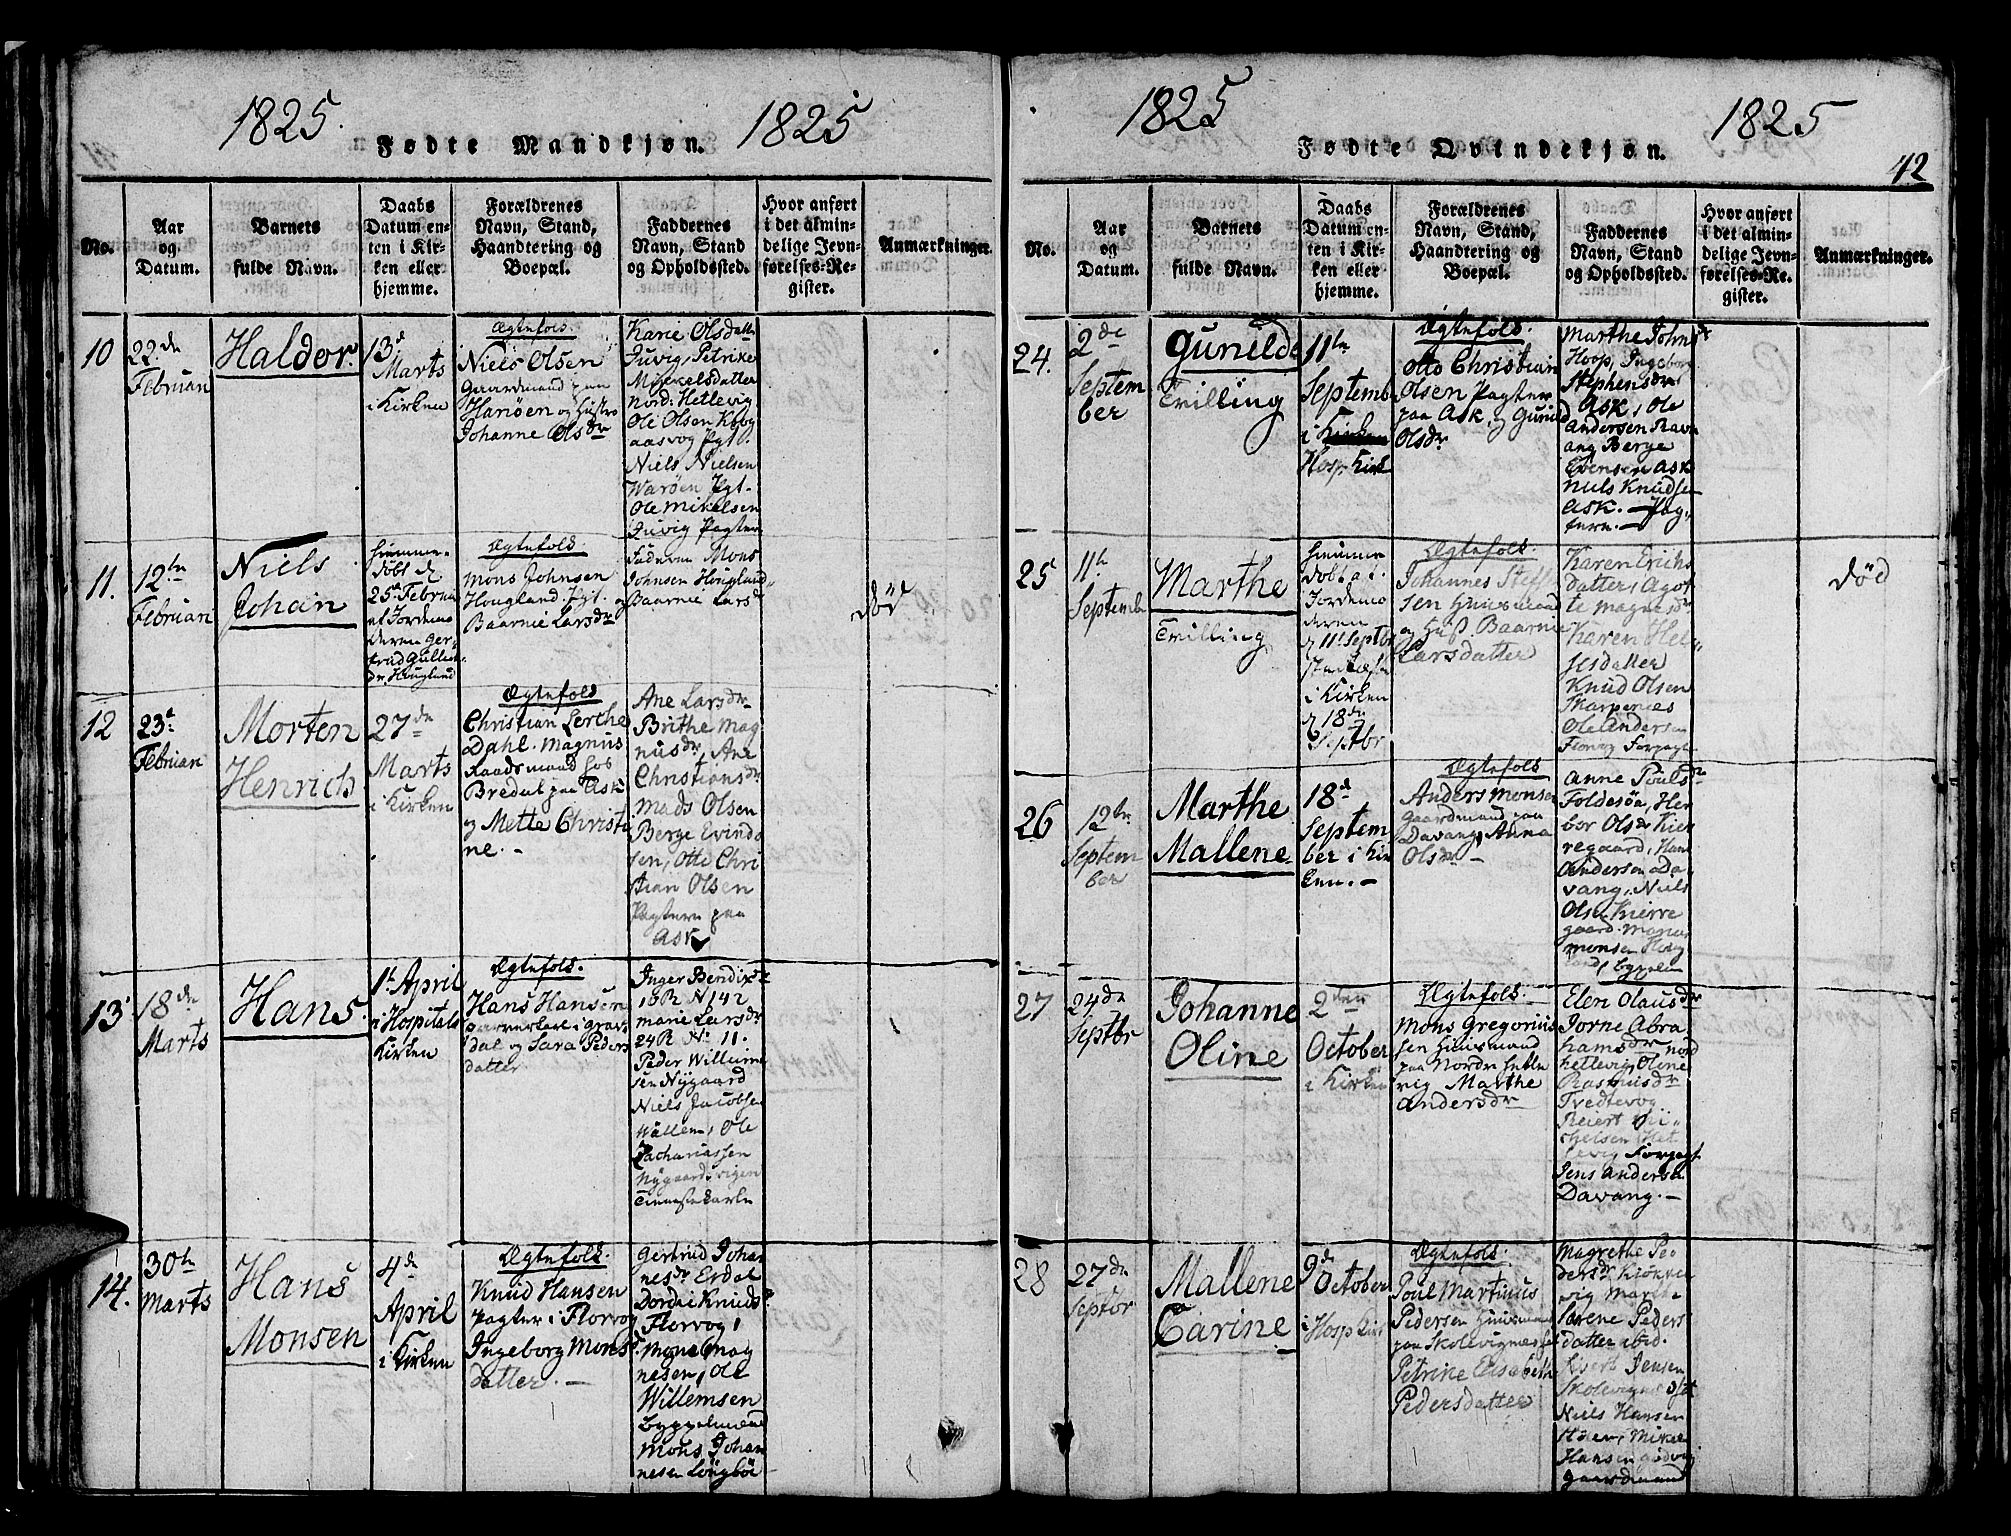 1825. 1825
Fødte Mandkjøn.
No.
Aar
og
Datum.
Barnets
fulde Navn.
Daabs
Datum en-
ten i Kir-
ken eller
hjemme.
Forældrenes
Navn, Stand,
Haandtering og
Boepæl.
Faddernes
Navn, Stand
og Opholdssted.
Hvor anført
i det almin-
delige Jevn-
førelses-Re-
gister.
Anmærkninger.
10
22de
Februari
Haldor.
13d
Marts
i Kirken
Ægtefolk.
Niels Olsen
Gaardmand paa
Hanöen og Hustro
Johanne Olsdr
Karie Olsdatter
Juvig, Petrike
Mickelsdatter
nord: Hetlevig
Ole Olsen
Niels Nielsen
Waröen Pgt.
Ole Mikelsen
Juvig Pagtere
11.
12te
Februari
Niels
Johan
hjemme-
döbt d
25de Februa
af Jordemo
deren Ger-
trud Gullac
dr. Hougland
Ægtefolk
Mons Johnsen
Hougland Pgt. og
Baarnie Larsdr
Faderen Mons
Johnsen Hougland
Baarnie Larsdr
död
12
23d
Februari
Morten
Henrich
27de
Marts
i Kirken
Ægtefolk
Christian Lerche
Dahl. Magnus
Raadsmand hos
Bredal paa Ask
og Mette Christi
ne. -
Ane Larsdr
Brithe Mag
nusdr, Ane
Christiansdr
Mads Olsen
Berge Evinds
sen, Otte Chri
stian Olsen
Pagtere paa
Ask
13
18de
Marts
Hans.
1te April
i Hospitals
Kirken
Ægtefolk.
Hans Hansen
i Grav
dal og Sara Peders
datter
Inger Bendixdr
18R N 142
Marie Larsdr
24R No 11.
Peder Willum
sen Nygaard
Niels Jacobsen
Wallem, Ole
Zachariassen
Nygaard
Tienestekarle
14.
30te
Marts
Hans
Monsen
4de
April
i Kirken
Ægtefolk.
Knud Hansen
Pagter i Florvog
Ingeborg Mons
datter. -
Gertrud Johan
nesdr Erdal
Dordei Knudsdr
Florvog,
Mons Mag
nesen, Ole
Willemsen
bygselmænd
Mons Johan
nesen
1825 1825
Fødte Qvindekjøn.
42
No.
Aar
og
Datum.
Barnets
fulde Navn.
Daabs
Datum en-
ten i Kir-
ken eller
hjemme.
Forældrenes
Navn, Stand,
Haandtering og
Boepæl.
Faddernes
Navn, Stand
og Opholdssted.
Hvor anført
i det almin-
delige Jevn-
førelses-Re-
gister.
Anmærkninger.
24.
2de
Septem
ber
Gunilde
Tvilling
11te
Septembr
i Kirken
Hosp. Kirk
Ægtefolk.
Otto Christian
Olsen Pagter
paa Ask, og Gunild
Olsdr
Marthe Johnsdr
Hoop, Ingeborg
Stephensdr
Ask, Ole
Andersen Ravn
ang Berge
Evensen Ask
Nils Knudsen
Ask. - Pag,,
tere. -
25
11te
Septembr
Marthe
Tvilling
hjemme
döbt af
Jordemo
deren
d 11te Septbr
i Kirken
d 18de
Septbr
Ægtefolk.
Johannes Steffen
sen Huusmand
og Hust. Baarnie
Larsdatter
Karen Erichs
datter, Agot
te Magnesdr
Karen Hel-
gesdatter
Knud Olsen
Skarpenes
Ole Andersen
död
26
12te
Septem
ber
Marthe
Mallene
18d
Septem
ber i Kir
ken. -
Ægtefolk
Anders Monsen
Gaardmand paa
Davang, Anna
Olsdr -
Anne Poulsdr
Foldesöa, Her
bor Olsdr Kier
regaard, Hans
Andersen Da
vang, Niels
Olsen Kierre
gaard. Mons
Monsen Houg
land, bygselm
27
24de
Septbr
Johanne
Oline
2den
October
i Kirken
Ægtefolk
Mons Gregorius
sen Huusmand
paa Nordre Hetle
vig Marthe
Andersdr
Elen Olausdr
Jorne Abra
hamsdr nord
hetlevig, Oline
Rasmusdr
Tvedtevog
Reiert Mi-
chelsen Het
levig Forpagt
Jens Andersen
Davang. -
28
27de
Septbr
Mallene
Carine
9d
October
i Hosp Kirk
Ægtefolk.
Poul Martinus
Pedersen Huusmand
paa Skolevignæsset
Petrike Elisabeth
Pedersdatter
Magrethe Pe-
dersdr
vig
Sörene Peders
datter ibid.
Sivert Jensen
Skolevignæsset
Niels Hansen
Mikel
Hansen
gaardmænd